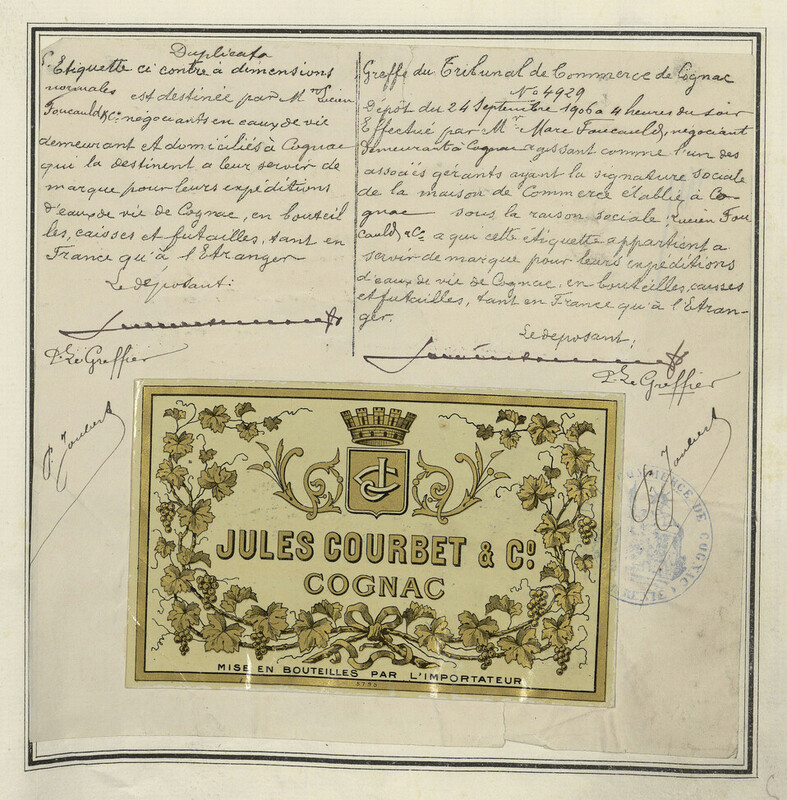 Duplicata
L'Etiquette ci contre à dimensions
normales est destinée par Mr Lucien
Foucauld & Cie négociants en eaux de vie
demeurant et domiciliés à Cognac
qui la destinent a leur servir de
marque pour leurs expéditions
d'eaux de vie de Cognac, en bouteil
les, caisses et futailles, tant en
France qu'à l'Etranger
Le déposant:
P. Le Greffier
P. Joubert
Greffe du Tribunal de Commerce de Cognac
No 4929
Dépôt du 24 Septembre 1906 à 4 heures du soir
Effectué par Mr Marc Foucauld, négociant
demeurant à Cognac agissant comme l'un des
associés gérants ayant la signature sociale
de la maison de Commerce établie à Co-
gnac sous la raison sociale: Lucien Fou
cauld & Cie a qui cette etiquette appartient a
servir de marque pour leurs expéditions
d'eaux de vie de Cognac, en bouteilles, caisses
et futailles, tant en France qu'à l'Etran-
ger.
Le déposant:
P. Le Greffier
P. Joubert
JULES COURBET & Co.
COGNAC
MISE EN BOUTEILLES PAR L'IMPORTATEUR
COMMERCE DE COGNAC